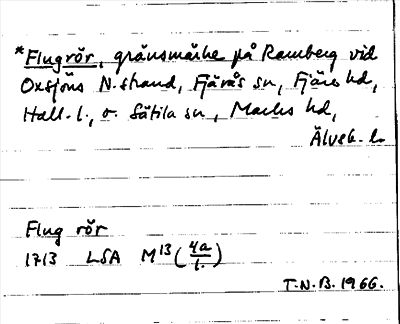 *Flugrör, gränsmärke på Ramberg vid
Oxsjöns N. strand, Fjärås sn, Fjäre hd,
Hall. l., o. Sätila sn, Marks hd,
Älvsb. l.
Flug rör
1713 LSA M13 (4a/1.)
T.N.B. 1966.